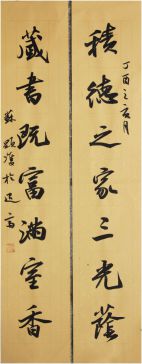 丁酉之亥月
積德之家三光蔭
藏書既富滿室香
蘇
於迟齋